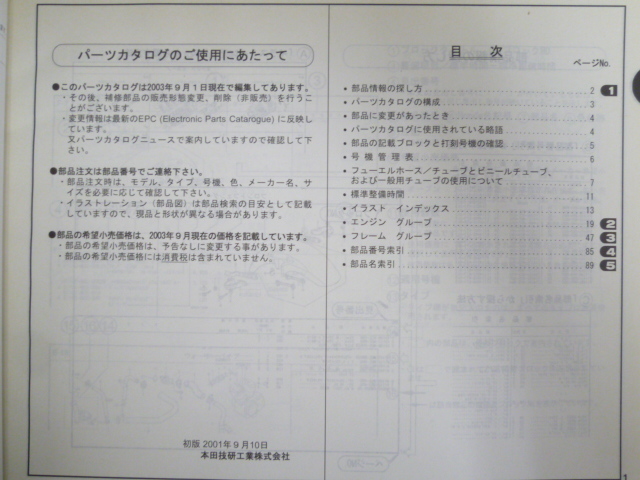 パーツカタログのご使用にあたって
●このパーツカタログは2003年9月1日現在で編集してあります。
・その後、補修部品の販売形態変更、削除（非販売）を行うこ
とがございます。
・変更情報は最新のEPC (Electronic Parts Catarogue) に反映し
ています。
又パーツカタログニュースで案内していますので確認して下
さい。
●部品注文は部品番号でご連絡下さい。
・部品注文時は、モデル、タイプ、号機、色、メーカー名、サ
イズを必要に応じて確認して下さい。
・イラストレーション（部品図）は部品検索の目安として記載
していますので、現品と形状が異なる場合があります。
●部品の希望小売価格は、2003年9月現在の価格を記載しています。
・部品の希望小売価格は、予告なしに変更する事があります。
・部品の希望小売価格には消費税は含まれていません。
初版 2001年9月10日
本田技研工業株式会社
目 次
ページNo.
• 部品情報の探し方 2 1
• パーツカタログの構成 3
• 部品に変更があったとき 4
• パーツカタログに使用されている略語 4
• 部品の記載ブロックと打刻号機の確認 5
• 号 機 管 理 表 6
• フューエルホース／チューブとビニールチューブ、
および一般用チューブの使用について 7
• 標準整備時間 11
• イラスト インデックス 13
• エンジン グループ 19 2
• フレーム グループ 47 3
• 部品番号索引 85 4
• 部品名索引 89 5
1